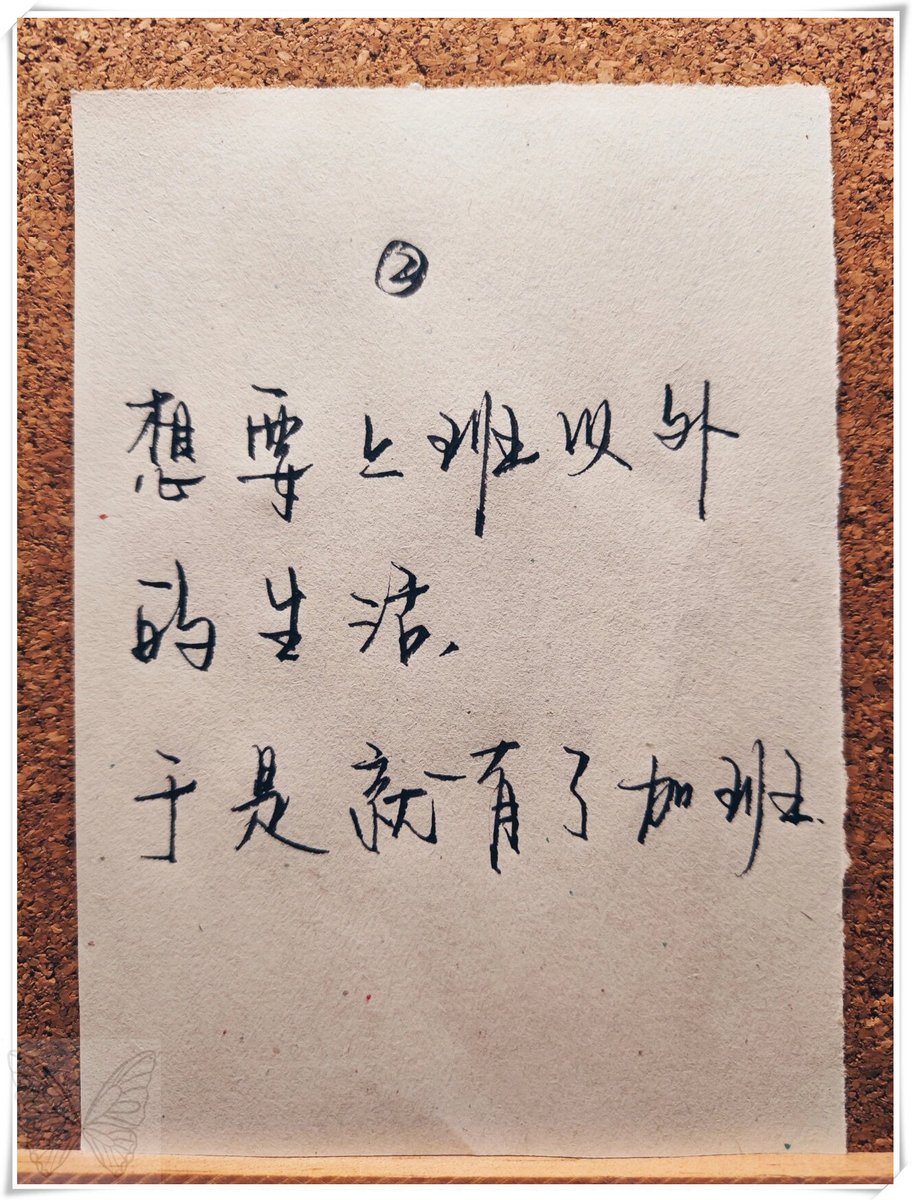 ②
想要上班以外
的生活、
于是就有了加班.